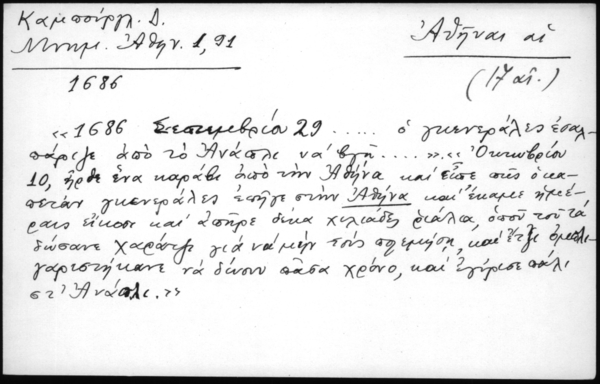 Καμπούργλ. Δ.
Μνημ. Ἀθην. 1, 91
Ἀθῆναι αἱ
1686
(17 αἰ.)
«1686 Σεπτεμβρίου 29 ..... ὁ γκενεράλες ἐσαλ-
πάριζε ἀπὸ τὸ Ἀνάπλι νὰ βγῆ ....». «Ὀκτωβρίου
10, ἦρθε ἕνα καράβι ἀπὸ τὴν Ἀθήνα καὶ εἶπε πῶς ὁ κα-
πετὰν γκενεράλες ἐπῆγε στὴν Ἀθήνα καὶ ἔκαμε ἡμέ-
ραις εἴκοσι καὶ ἐπῆρε δέκα χιλιάδες ριάλια, ὁποῦ τοῦ τὰ
δώσανε χαράτζι γιὰ νὰ μὴν τοὺς κρεμήση, καὶ ἔτζι ὀμπλι-
γαριστήκανε νὰ δίνου πᾶσα χρόνο, καὶ ἐγύρισε πάλι
στ' Ἀνάπλι.»